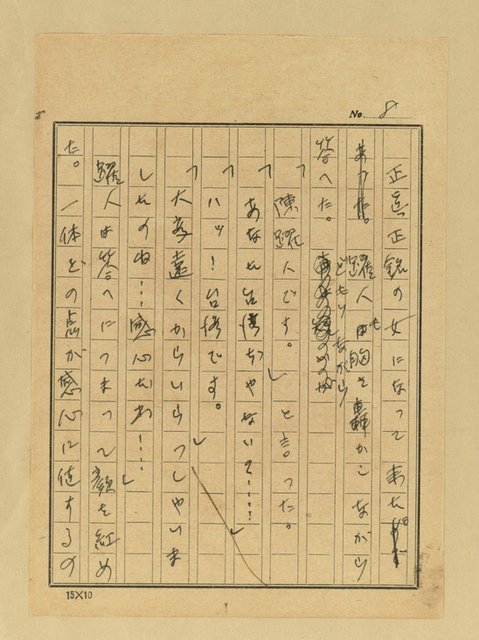 No. 8
正真正銘の女になって来た
あった。躍人は胸を轟かしながら
どもりながら
答へた。
「陳躍人です。」と言った。
「あなた台湾ぢやないで……」
「ハッ!台湾です。
「大変遠くからいらつしやいま
したのね…感心だわ…」
躍人は答へにつまって顔を紅め
た。一体どの点が感心に値するの
15×10